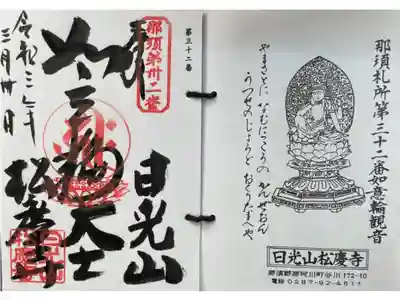 第三十二番
奉拝
那須第卅二番
如意輪大士
日光山
松慶寺
令和三年
三月卅日
那須札所第三十二番如意輪観音
やまさとに なむにつこうの かんぜおん
うつせのじょうど
日光山松慶寺
那須郡那珂川町谷川172-10
電話